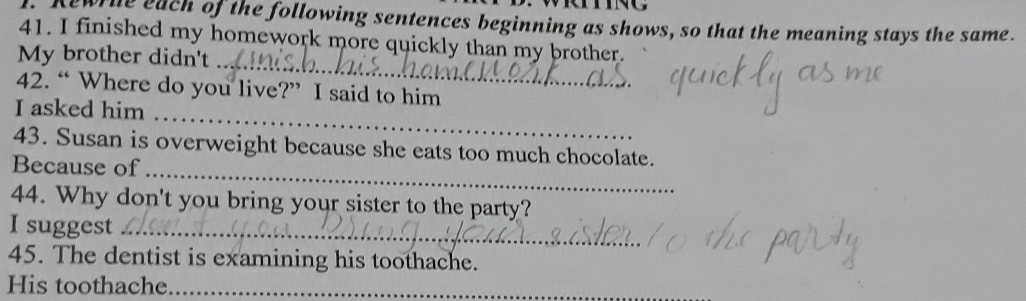 I. Rewrite each of the following sentences beginning as shows, so that the meaning stays the same.
41. I finished my homework more quickly than my brother.
My brother didn't ...finish...his...homework...as... quickly as me
42. “ Where do you live?” I said to him
I asked him ..........................................................
43. Susan is overweight because she eats too much chocolate.
Because of ................................................................
44. Why don't you bring your sister to the party?
I suggest ..don't...you...bring...your...sister.. to the party
45. The dentist is examining his toothache.
His toothache................................................................